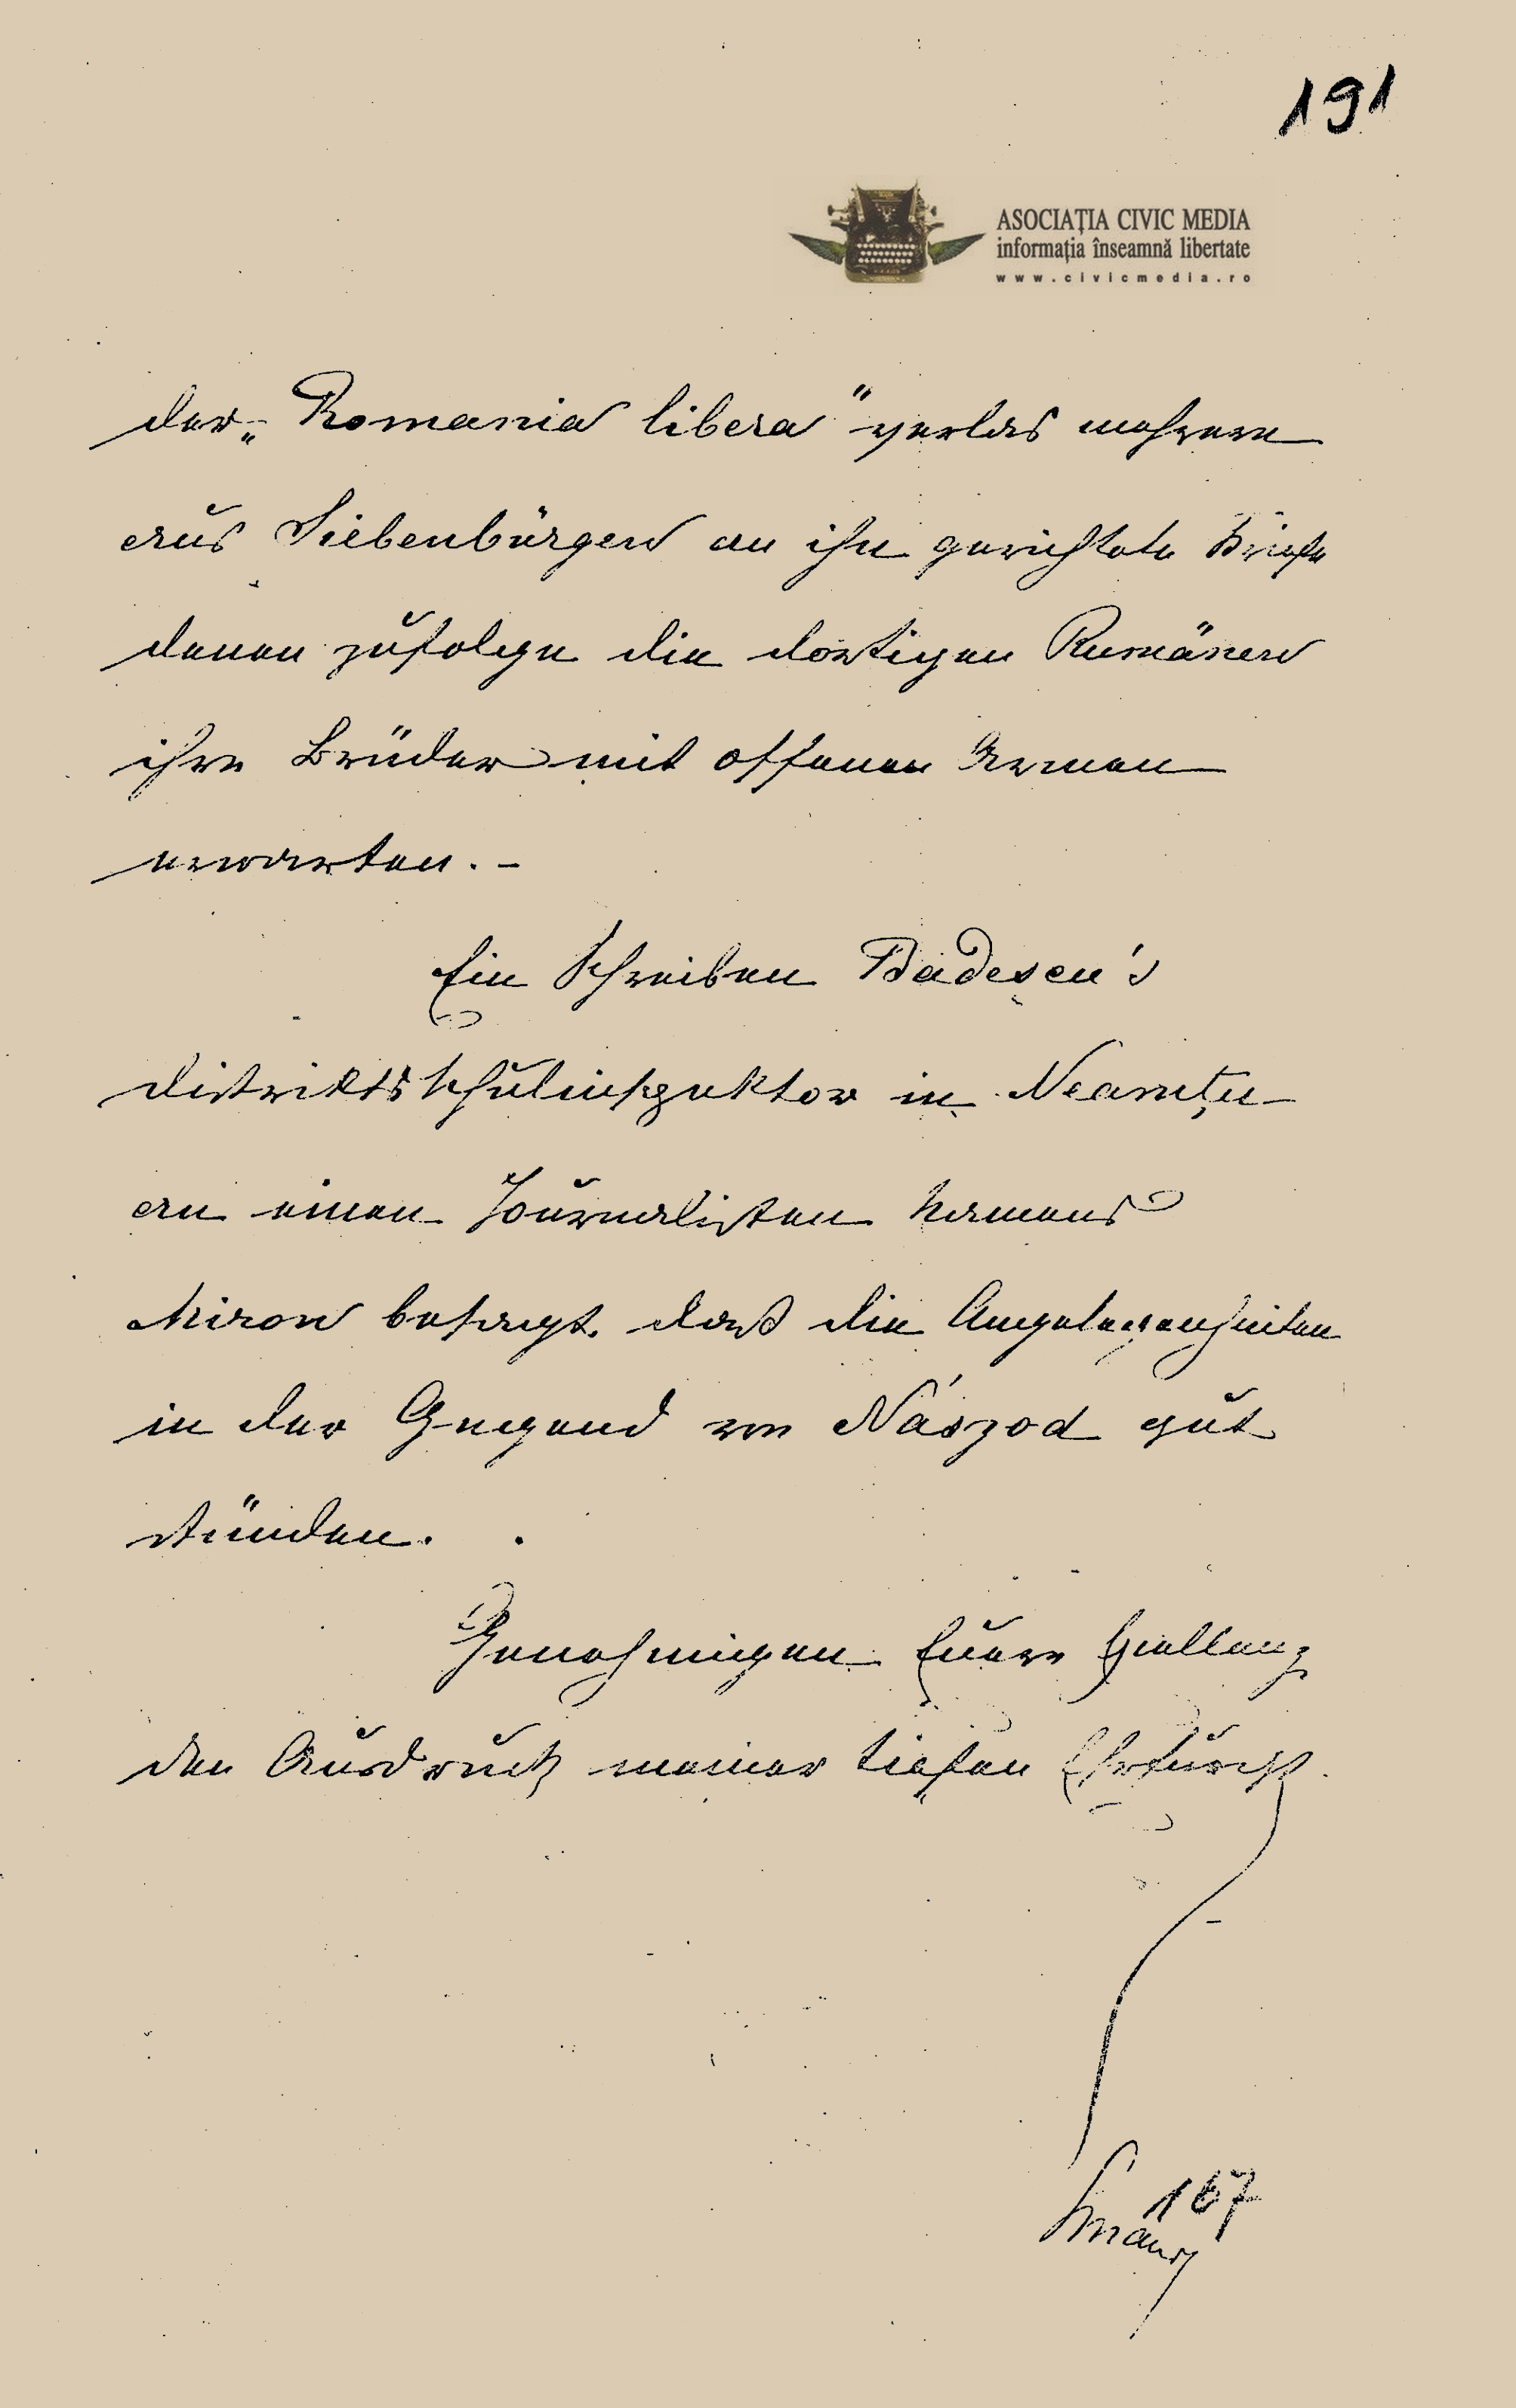 191
ASOCIAȚIA CIVIC MEDIA
informația înseamnă libertate
www.civicmedia.ro
der „Romania libera" verlas mehrere
aus Siebenbürgen an ihn gerichtete Briefe
denen zufolge die dortigen Rumänen
ihre Brüder mit offenen Armen
erwarten. -
Ein Schreiben Badescu's
Distriktsschulinspektor in Neamțu
an einen Journalisten Namens
Miron besagt, daß die Angelegenheiten
in der Gegend von Nászod gut
stünden.
Genehmigen Euere Exellenz
den Ausdruck meiner tiefen Ehrfurcht.
167